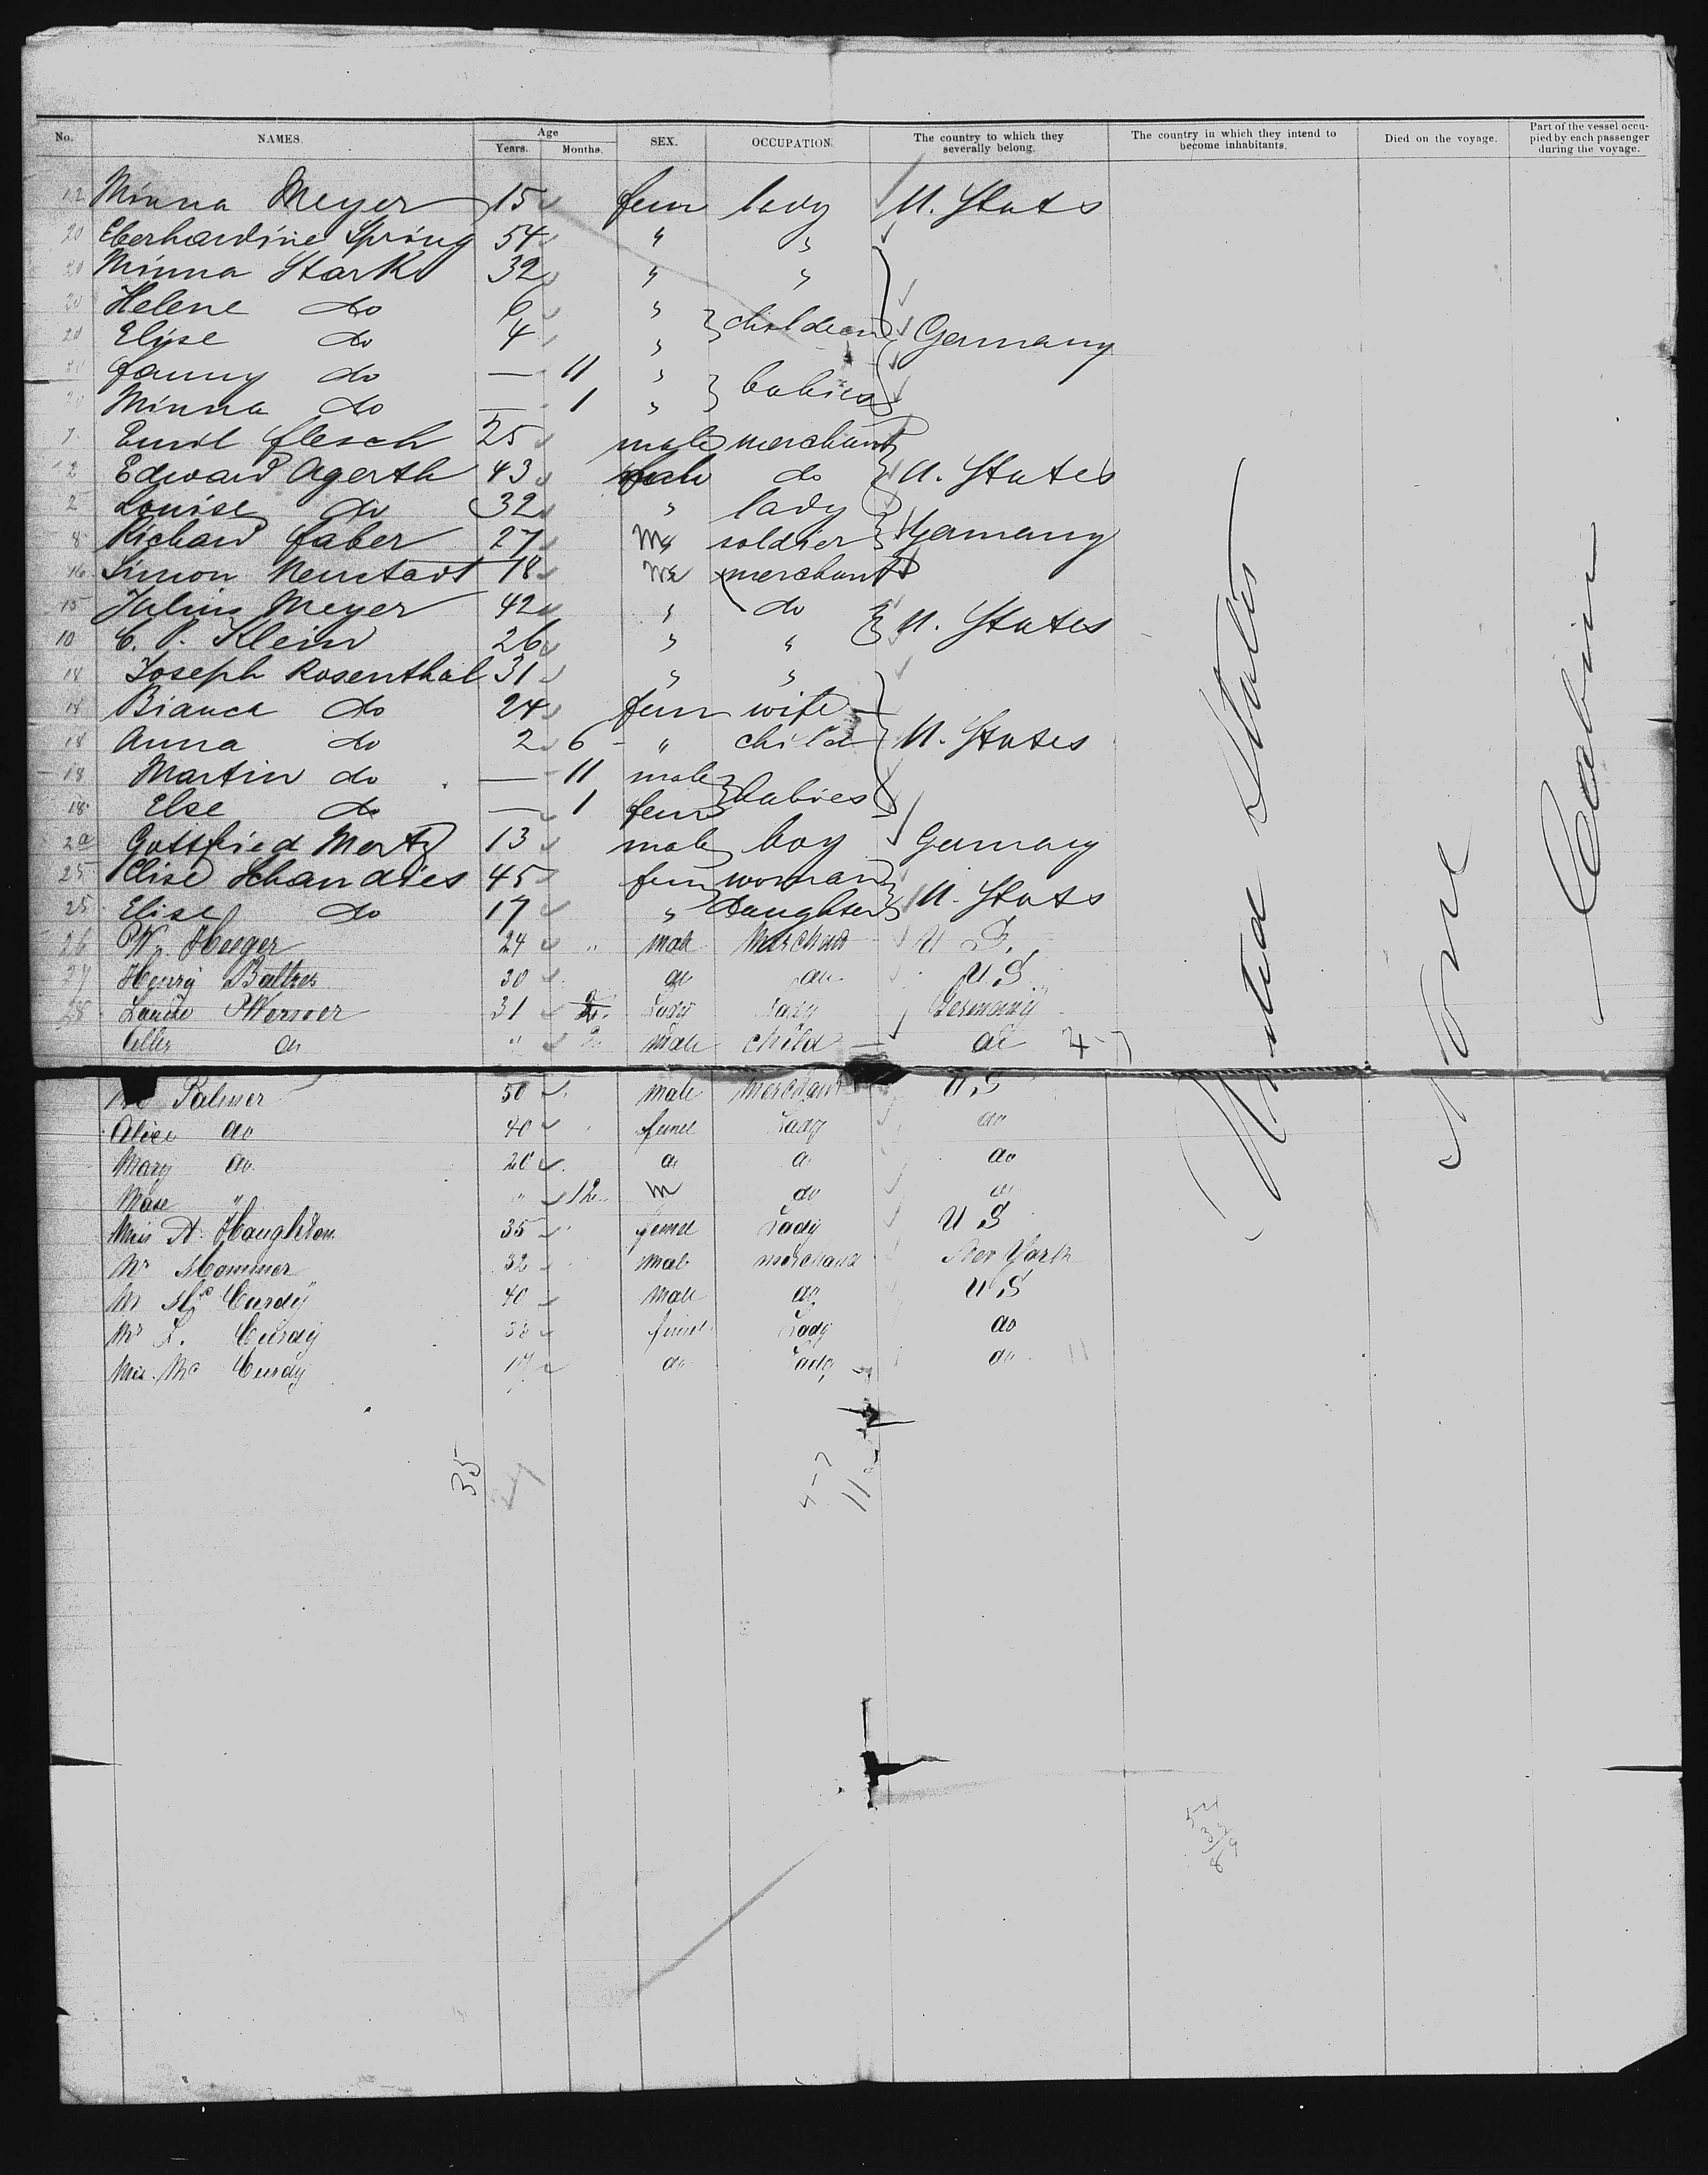 No. NAMES. Age Years. Months. SEX. OCCUPATION. The country to which they severally belong. The country in which they intend to become inhabitants. Died on the voyage. Part of the vessel occupied by each passenger during the voyage.
12 Minna Meyer 15 fem lady U. States
20 Eberhardine Spring 54 " "
20 Minna Stark 32 " "
20 Helene do 6 " children
20 Elise do 4 " Germany
Fanny do — 11 " babies
20 Minna do — 1 "
7 Emil Flesch 25 male merchant
2 Edward Agerth 43 do U. States
2 Louise do 32 " lady
8 Richard Faber 27 M soldier Germany
16 Simon Neustadt 18 merchant
15 Julius Meyer 42 " do U. States
10 C. P. Klein 26 " "
18 Joseph Rosenthal 31 " "
18 Bianca do 24 fem wife
18 Anna do 2 6 " child U. States
18 Martin do — 11 male babies
18 Else do — 1 fem
Gottfried Mertz 13 male boy Germany
25 Elise Schandies 45 fem woman
25 Elise do 17 " daughter U. Stats
26 W. Heeger 24 " male U S.
27 Henry Baltzer 30 do do U.S
28 31 Lady Lady Germany
do " male child do 4-7
Palmer 50 male merchant U.S
Alice do 40 femel Lady do
Mary do 20 do do do
" 12 m do do
Miss A. Haughton 35 femel Lady U S
Mr 32 male merchand New York
Mr Mc Curdy 40 male do U.S
Mrs L. Curdy femel Lady do
Mc Curdy 17 do Lady do 11
United States
None
Cabin
35
4-7
11